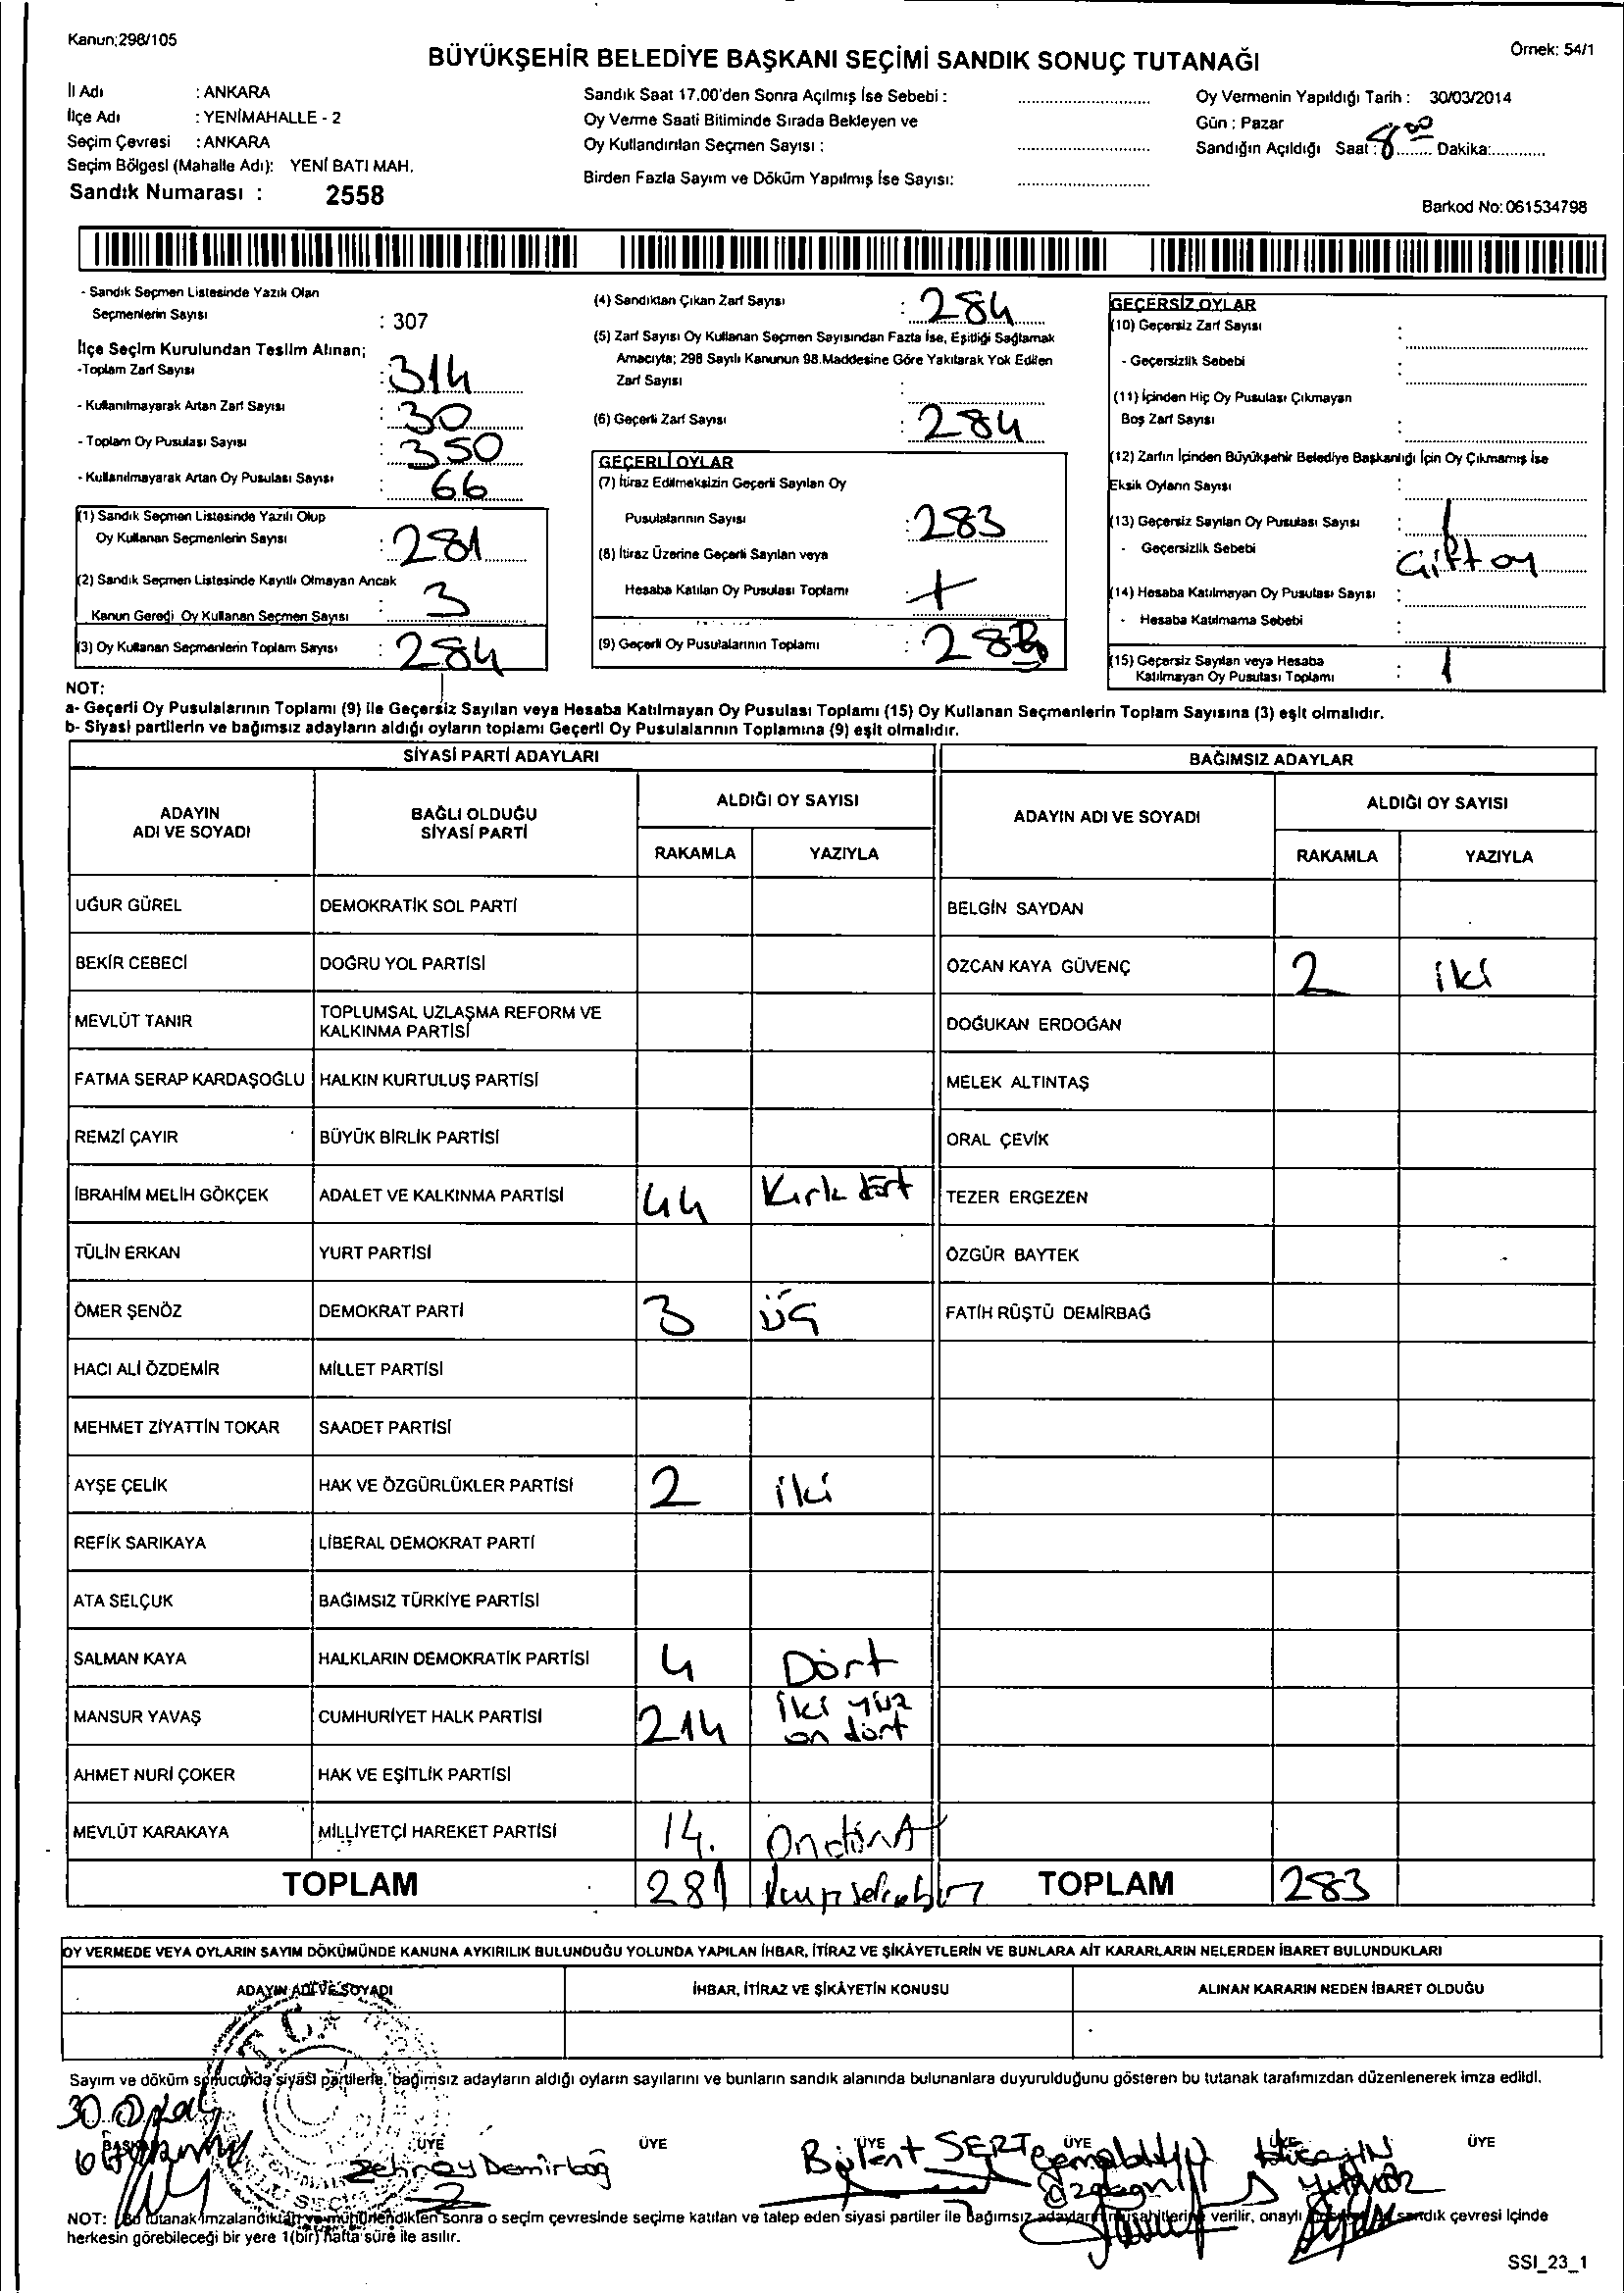 Kanun;298/105
BÜYÜKŞEHİR BELEDİYE BAŞKANI SEÇİMİ SANDIK SONUÇ TUTANAĞI
Örnek: 54/1
İl Adı : ANKARA
İlçe Adı : YENİMAHALLE - 2
Seçim Çevresi : ANKARA
Seçim Bölgesi (Mahalle Adı): YENİ BATI MAH.
Sandık Numarası : 2558
Sandık Saat 17.00'den Sonra Açılmış İse Sebebi :
Oy Verme Saati Bitiminde Sırada Bekleyen ve
Oy Kullandırılan Seçmen Sayısı :
Birden Fazla Sayım ve Döküm Yapılmış İse Sayısı:
Oy Vermenin Yapıldığı Tarih : 30/03/2014
Gün : Pazar
Sandığın Açıldığı Saat : 8.00 Dakika:
Barkod No: 061534798
- Sandık Seçmen Listesinde Yazılı Olan
Seçmenlerin Sayısı : 307
İlçe Seçim Kurulundan Teslim Alınan;
-Toplam Zarf Sayısı : 314
- Kullanılmayarak Artan Zarf Sayısı : 30
- Toplam Oy Pusulası Sayısı : 350
- Kullanılmayarak Artan Oy Pusulası Sayısı : 66
(1) Sandık Seçmen Listesinde Yazılı Olup
Oy Kullanan Seçmenlerin Sayısı : 281
(2) Sandık Seçmen Listesinde Kayıtlı Olmayan Ancak
Kanun Gereği Oy Kullanan Seçmen Sayısı : 3
(3) Oy Kullanan Seçmenlerin Toplam Sayısı : 284
(4) Sandıktan Çıkan Zarf Sayısı : 284
(5) Zarf Sayısı Oy Kullanan Seçmen Sayısından Fazla İse, Eşitliği Sağlamak
Amacıyla; 298 Sayılı Kanunun 98.Maddesine Göre Yakılarak Yok Edilen
Zarf Sayısı :
(6) Geçerli Zarf Sayısı : 284
GEÇERLİ OYLAR
(7) İtiraz Edilmeksizin Geçerli Sayılan Oy
Pusulalarının Sayısı : 283
(8) İtiraz Üzerine Geçerli Sayılan veya
Hesaba Katılan Oy Pusulası Toplamı :
(9) Geçerli Oy Pusulalarının Toplamı : 283
GEÇERSİZ OYLAR
(10) Geçersiz Zarf Sayısı :
- Geçersizlik Sebebi :
(11) İçinden Hiç Oy Pusulası Çıkmayan
Boş Zarf Sayısı :
(12) Zarfın İçinden Büyükşehir Belediye Başkanlığı İçin Oy Çıkmamış İse
Eksik Oyların Sayısı :
(13) Geçersiz Sayılan Oy Pusulası Sayısı : 1
- Geçersizlik Sebebi : Çift oy
(14) Hesaba Katılmayan Oy Pusulası Sayısı :
- Hesaba Katılmama Sebebi :
(15) Geçersiz Sayılan veya Hesaba
Katılmayan Oy Pusulası Toplamı : 1
NOT:
a- Geçerli Oy Pusulalarının Toplamı (9) ile Geçersiz Sayılan veya Hesaba Katılmayan Oy Pusulası Toplamı (15) Oy Kullanan Seçmenlerin Toplam Sayısına (3) eşit olmalıdır.
b- Siyasi partilerin ve bağımsız adayların aldığı oyların toplamı Geçerli Oy Pusulalarının Toplamına (9) eşit olmalıdır.
SİYASİ PARTİ ADAYLARI BAĞIMSIZ ADAYLAR
ADAYIN ADI VE SOYADI BAĞLI OLDUĞU SİYASİ PARTİ ALDIĞI OY SAYISI ADAYIN ADI VE SOYADI ALDIĞI OY SAYISI
RAKAMLA YAZIYLA RAKAMLA YAZIYLA
UĞUR GÜREL DEMOKRATİK SOL PARTİ BELGİN SAYDAN
BEKİR CEBECİ DOĞRU YOL PARTİSİ ÖZCAN KAYA GÜVENÇ 2 iki
MEVLÜT TANIR TOPLUMSAL UZLAŞMA REFORM VE KALKINMA PARTİSİ DOĞUKAN ERDOĞAN
FATMA SERAP KARDAŞOĞLU HALKIN KURTULUŞ PARTİSİ MELEK ALTINTAŞ
REMZİ ÇAYIR BÜYÜK BİRLİK PARTİSİ ORAL ÇEVİK
İBRAHİM MELİH GÖKÇEK ADALET VE KALKINMA PARTİSİ 44 Kırk dört TEZER ERGEZEN
TÜLİN ERKAN YURT PARTİSİ ÖZGÜR BAYTEK
ÖMER ŞENÖZ DEMOKRAT PARTİ 3 üç FATİH RÜŞTÜ DEMİRBAĞ
HACI ALİ ÖZDEMİR MİLLET PARTİSİ
MEHMET ZİYATTİN TOKAR SAADET PARTİSİ
AYŞE ÇELİK HAK VE ÖZGÜRLÜKLER PARTİSİ 2 iki
REFİK SARIKAYA LİBERAL DEMOKRAT PARTİ
ATA SELÇUK BAĞIMSIZ TÜRKİYE PARTİSİ
SALMAN KAYA HALKLARIN DEMOKRATİK PARTİSİ 4 Dört
MANSUR YAVAŞ CUMHURİYET HALK PARTİSİ 214 iki yüz on dört
AHMET NURİ ÇOKER HAK VE EŞİTLİK PARTİSİ
MEVLÜT KARAKAYA MİLLİYETÇİ HAREKET PARTİSİ 14. Ondört
TOPLAM 281 TOPLAM 283
OY VERMEDE VEYA OYLARIN SAYIM DÖKÜMÜNDE KANUNA AYKIRILIK BULUNDUĞU YOLUNDA YAPILAN İHBAR, İTİRAZ VE ŞİKÂYETLERİN VE BUNLARA AİT KARARLARIN NELERDEN İBARET BULUNDUKLARI
ADAYIN ADI VE SOYADI İHBAR, İTİRAZ VE ŞİKÂYETİN KONUSU ALINAN KARARIN NEDEN İBARET OLDUĞU
T.C.
Sayım ve döküm sonucunda siyasi partilerle, bağımsız adayların aldığı oyların sayılarını ve bunların sandık alanında bulunanlara duyurulduğunu gösteren bu tutanak tarafımızdan düzenlenerek imza edildi.
BAŞKAN ÜYE ÜYE ÜYE ÜYE ÜYE ÜYE
Zehray Demirbağ Bülent SERT
NOT: Bu tutanak imzalandıktan ve mühürlendikten sonra o seçim çevresinde seçime katılan ve talep eden siyasi partiler ile bağımsız adayların müşahitlerine verilir, onaylı sandık çevresi içinde
herkesin görebileceği bir yere 1(bir) hafta süre ile asılır.
SSI_23_1